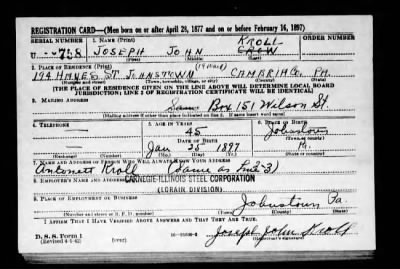 REGISTRATION CARD—(Men born on or after April 28, 1877 and on or before February 16, 1897)
SERIAL NUMBER 1. NAME (Print) ORDER NUMBER
KROLL
U 758 JOSEPH JOHN
(First) (Middle) (Last)
2. PLACE OF RESIDENCE (Print)
194 HAYNES ST. JOHNSTOWN CAMBRIA CO. PA.
(Number and street) (Town, township, village, or city) (County) (State)
[THE PLACE OF RESIDENCE GIVEN ON THE LINE ABOVE WILL DETERMINE LOCAL BOARD
JURISDICTION; LINE 2 OF REGISTRATION CERTIFICATE WILL BE IDENTICAL]
3. MAILING ADDRESS
Same Box 151 Wilson St.
[Mailing address if other than place indicated on line 2. If same insert word same]
4. TELEPHONE 5. AGE IN YEARS 6. PLACE OF BIRTH
45 Johnstown
DATE OF BIRTH (Town or county)
Jan 25 1897 Pa.
(Exchange) (Number) (Mo.) (Day) (Yr.) (State or country)
7. NAME AND ADDRESS OF PERSON WHO WILL ALWAYS KNOW YOUR ADDRESS
Antonett Kroll (Same as
8. EMPLOYER'S NAME AND ADDRESS
CARNEGIE-ILLINOIS STEEL CORPORATION
(LORAIN DIVISION)
9. PLACE OF EMPLOYMENT OR BUSINESS
Johnstown Pa.
(Number and street or R. F. D. number) (Town) (County) (State)
I AFFIRM THAT I HAVE VERIFIED ABOVE ANSWERS AND THAT THEY ARE TRUE.
D. S. S. Form 1
(Revised 4-1-42) (over)
Joseph John Kroll
(Registrant's signature)